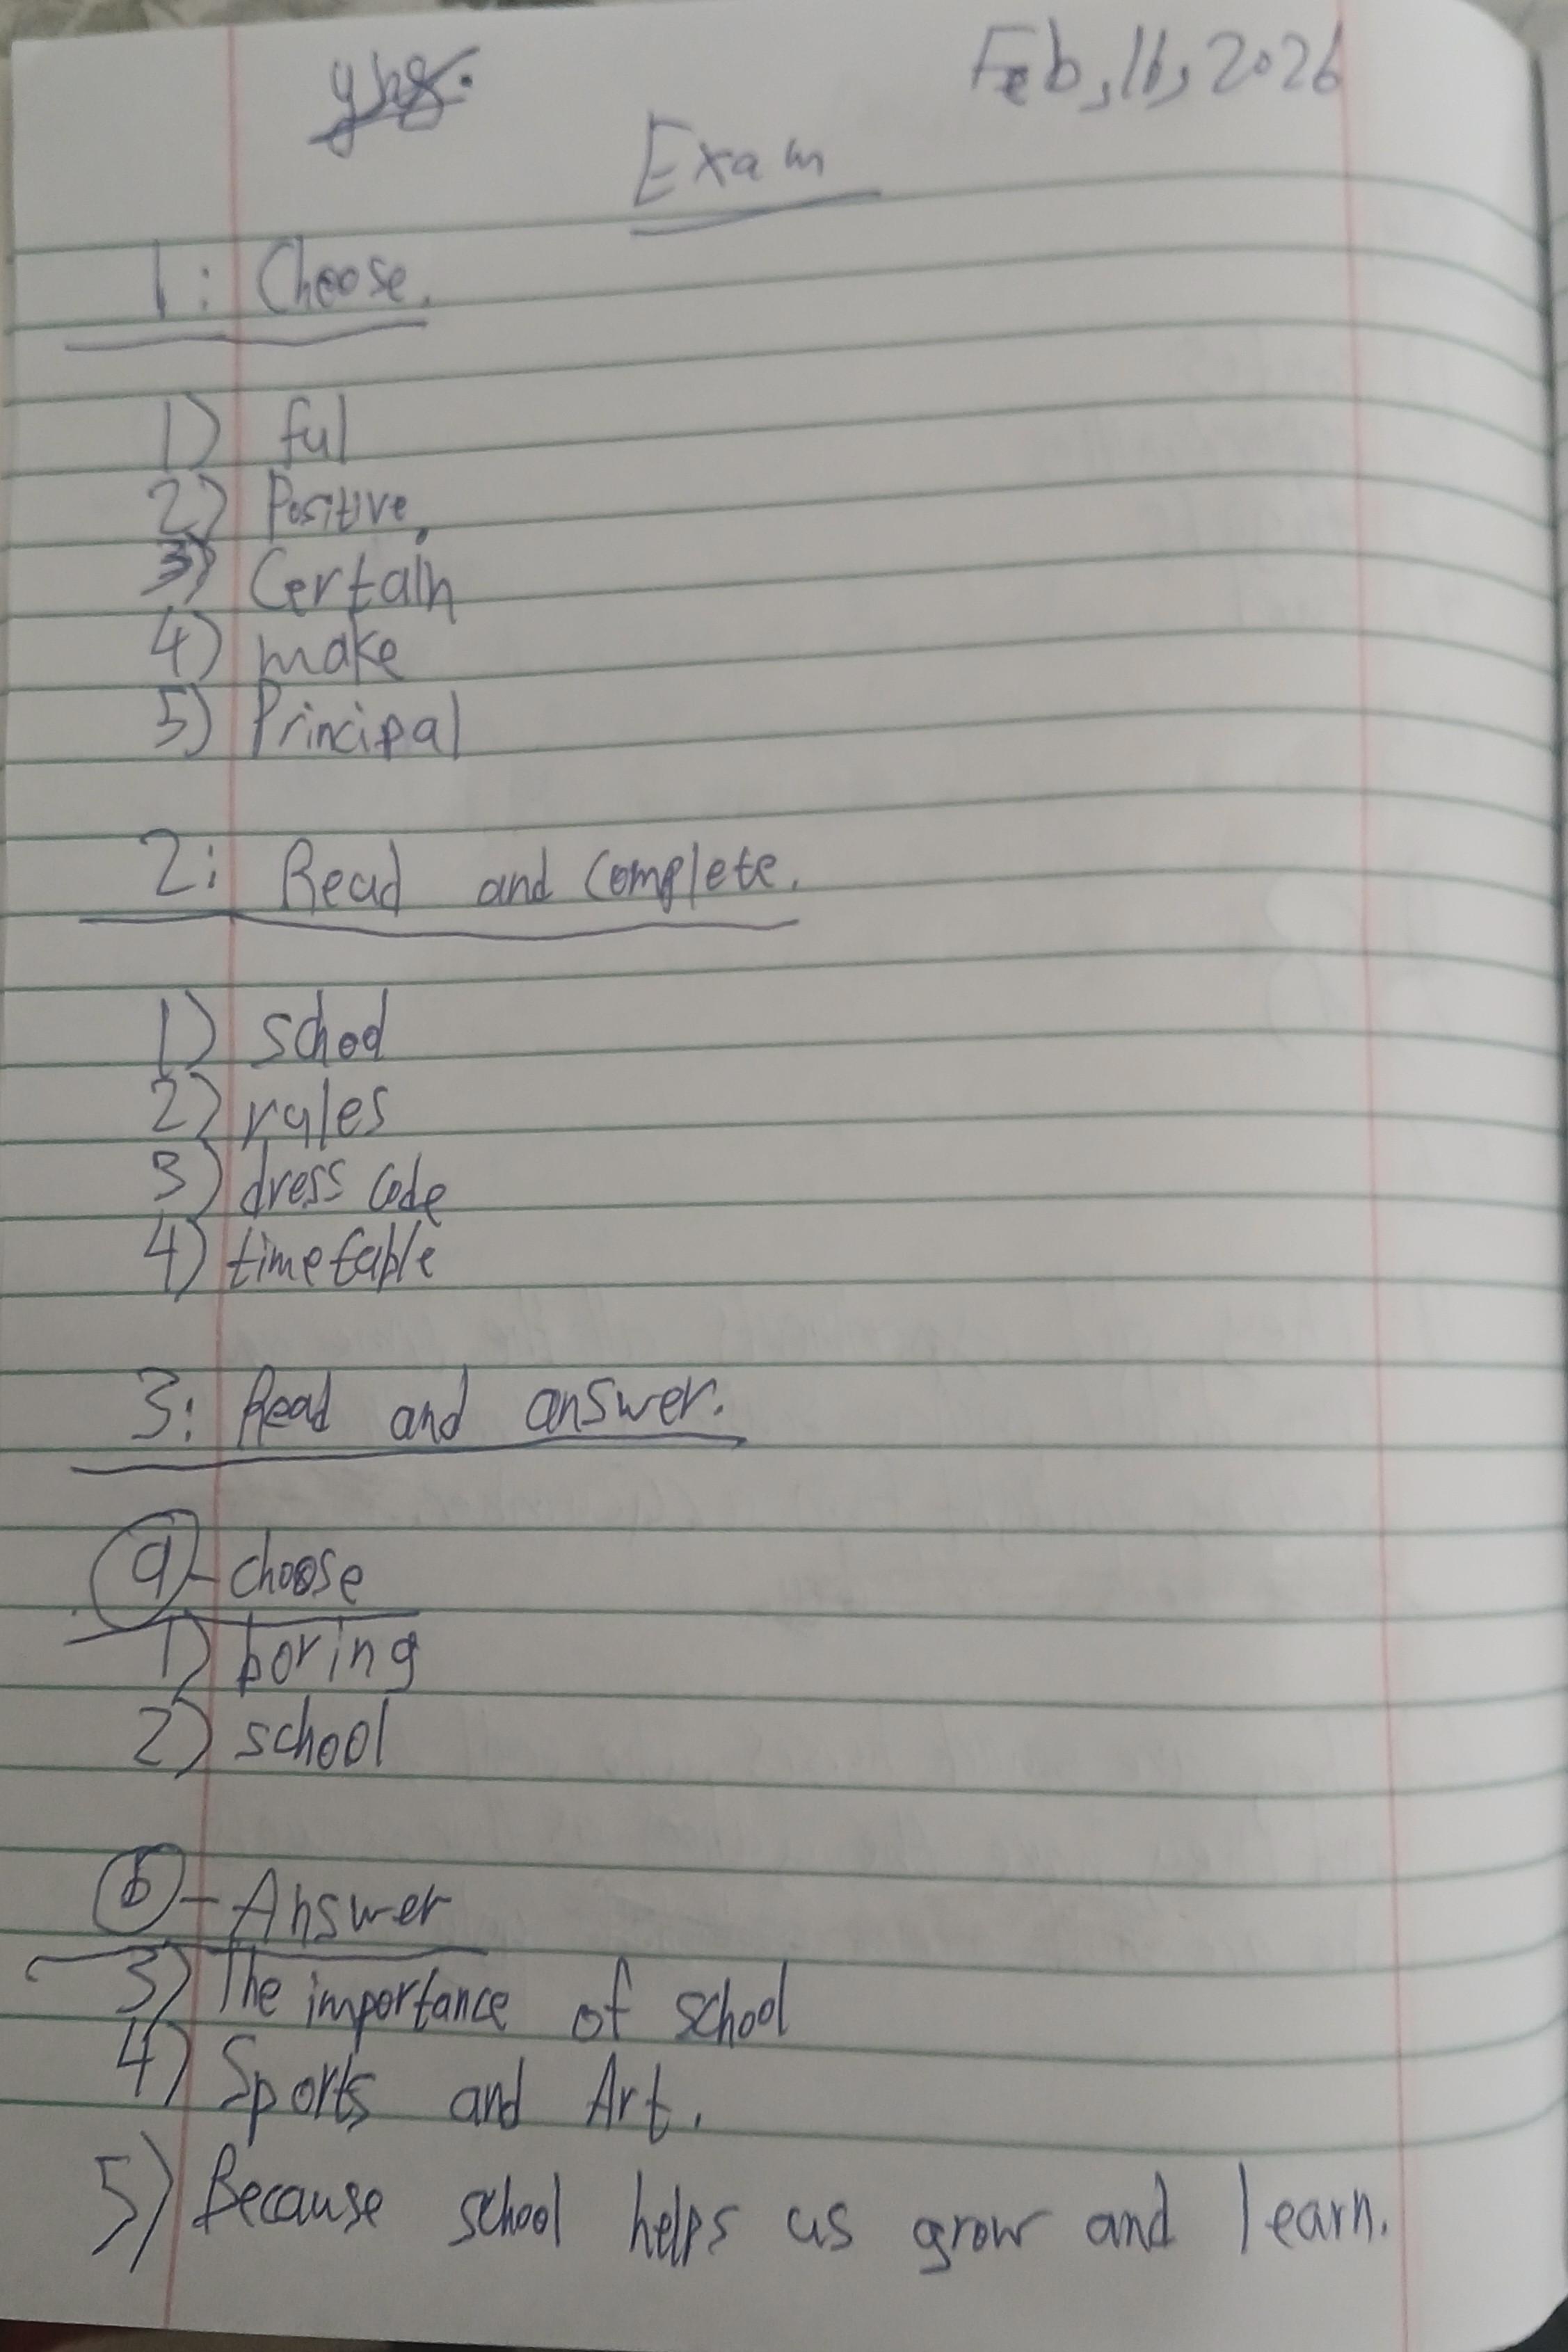 Feb, 16, 2026
Exam
1: Choose.
1) ful
2) Positive.
3) Certain
4) make
5) Principal
2: Read and complete.
1) school
2) rules
3) dress code
4) timetable
3: Read and answer.
a - choose
1) boring
2) school
b - Answer
3) The importance of school
4) Sports and Art.
5) Because school helps us grow and learn.